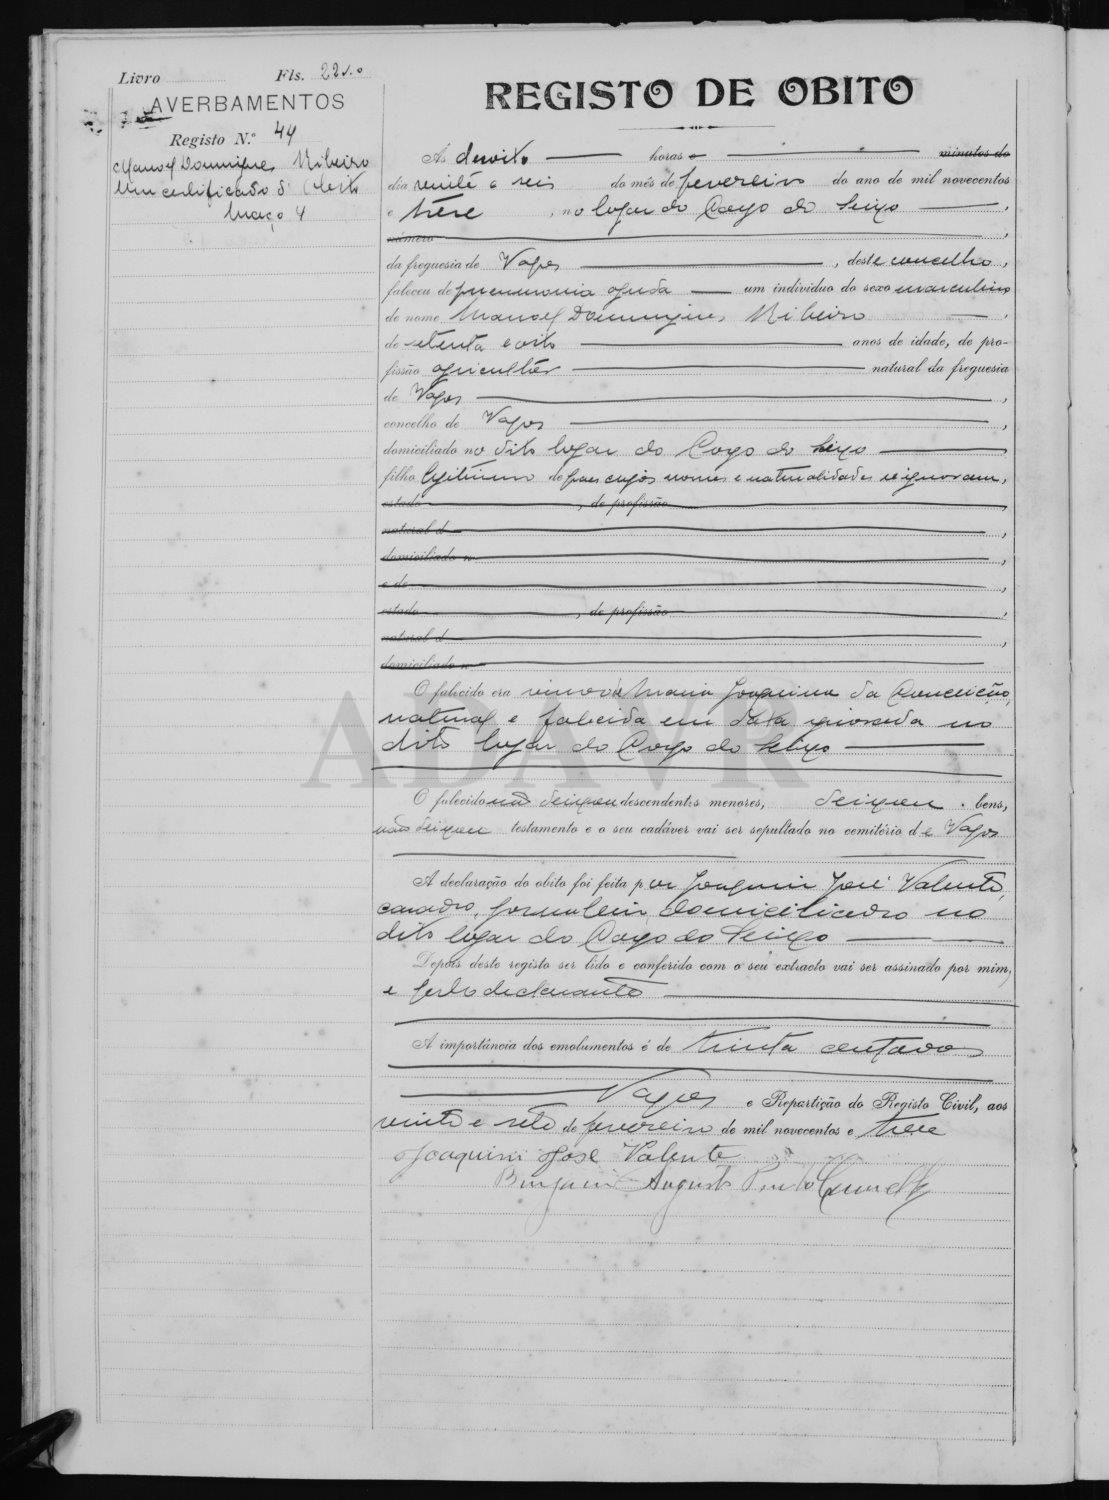 Livro Fls. 22 v.o
AVERBAMENTOS
Registo N.º 44
Manoel Domingues Ribeiro
Um certificado d'obito
Março 4
REGISTO DE OBITO
Ás desoito horas e minutos do
dia vinte e seis do mês de fevereiro do ano de mil novecentos
e trese, no logar do Corgo do Seixo,
número
da freguesia de Vagos, deste concelho,
faleceu de pneumonia aguda um individuo do sexo masculino
de nome Manoel Domingues Ribeiro,
de setenta e oito anos de idade, de pro-
fissão agricultor natural da freguesia
de Vagos,
concelho de Vagos,
domiciliado no dito logar do Corgo do Seixo
filho legitimo de paes cujos nomes e naturalidades se ignoram,
estado, de profissão
natural d
domiciliado n
e de
estado, de profissão
natural d
domiciliado n
O falecido era viuvo de Maria Joaquina da Conceição,
natural e falecida em data ignorada no
dito logar do Corgo do Seixo
O falecido não deixou descendentes menores, deixou bens,
não deixou testamento e o seu cadáver vai ser sepultado no cemitério de Vagos
A declaração do obito foi feita por Joaquim José Valente,
casado, jornaleiro, domiciliado no
dito logar do Corgo do Seixo
Depois deste registo ser lido e conferido com o seu extracto vai ser assinado por mim,
e pelo declarante
A importância dos emolumentos é de trinta centavos
Vagos e Repartição do Registo Civil, aos
vinte e sete de fevereiro de mil novecentos e trese
Joaquim José Valente
Benjamim Augusto
ADAVR